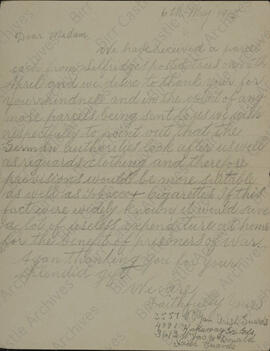 6th May 1915
Dear Madam
We have received a parcel
each from Selfridge's posted
April and we desire to thank you for
your kindness and in the event of any
more parcels being sent to us we wish
respectfully to point out that the
German authorities look after us well
as reguards clothing and therefore
provisions would be more suitable
as well as Tobacco + Cigarettes. If this
fact were widely known it would save
a lot of useless expenditure at home
for the benefit of prisoners of War.
Again thanking you for your
splendid gift
We are
Faithfully yours
Irish Guards
Donald
Guards